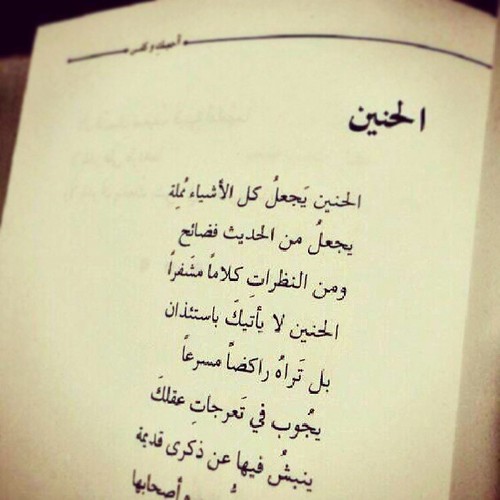 أحببتك وكفى
الحنين
الحنين يَجعلُ كل الأشياء مُملِة
يجعلُ من الحديث فضائح
ومن النظراتِ كلاماً مشَفراً
الحنين لا يأتيكَ باستئذان
بل تَراهُ راكضاً مسرعاً
يجُوب في تَعرجاتِ عقلكَ
ينبشُ فيها عن ذكرى قديمة
وأصحابها